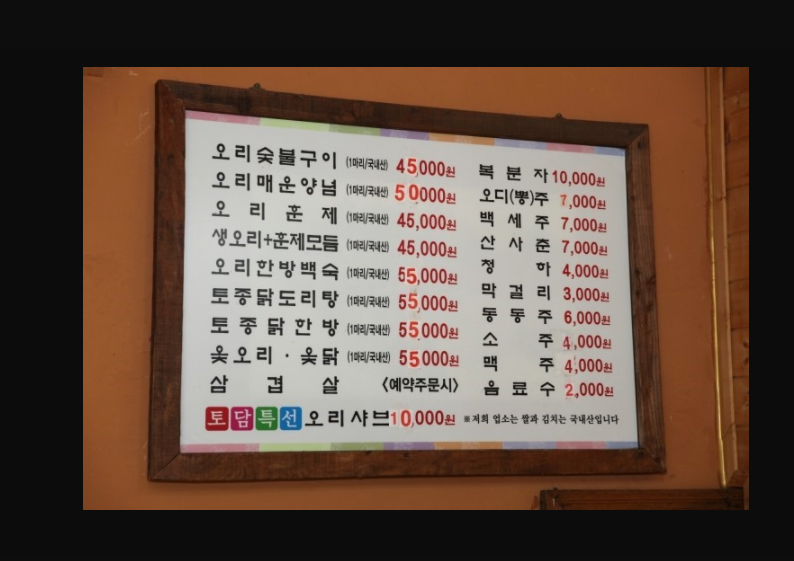 오리숯불구이 (1마리/국내산) 45,000원
오리매운양념 (1마리/국내산) 50000원
오리훈제 (1마리/국내산) 45,000원
생오리+훈제모듬 (1마리/국내산) 45,000원
오리한방백숙 (1마리/국내산) 55,000원
토종닭도리탕 (1마리/국내산) 55000원
토종닭한방 (1마리/국내산) 55000원
옻오리·옻닭 (1마리/국내산) 55000원
삼겹살 <예약주문시>
토담특선 오리샤브 10,000원
복분자 10,000원
오디(뽕)주 7,000원
백세주 7,000원
산사춘 7,000원
청하 4,000원
막걸리 3,000원
동동주 6,000원
소주 4,000원
맥주 4,000원
음료수 2,000원
※저희 업소는 쌀과 김치는 국내산입니다